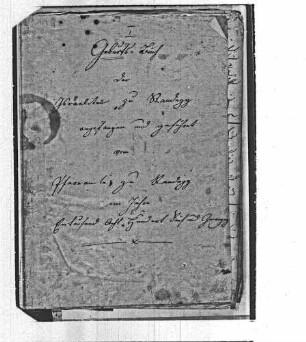 I
Geburts-Buch
der
Israeliten zu Randegg
angefangen und geführt
vom
Pfarramte zu Randegg
im Jahre
Eintausend Acht-Hundert